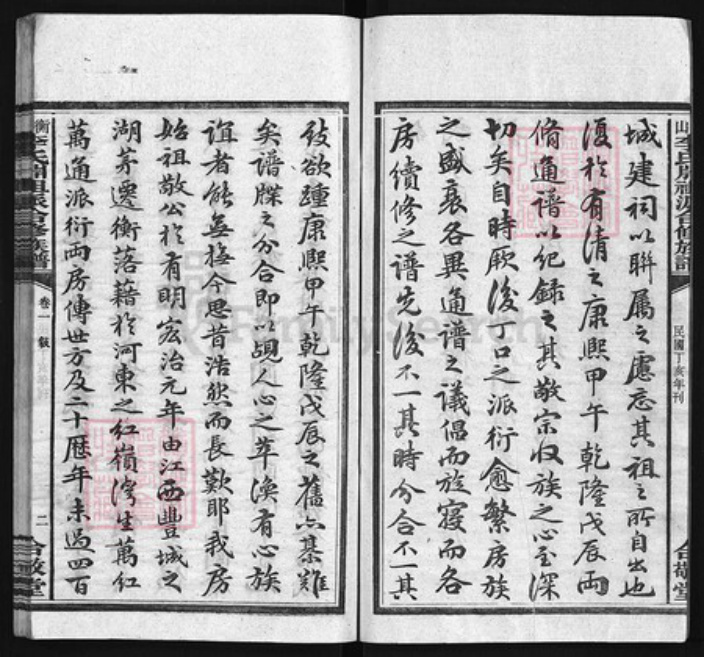 城建祠以聯屬之慮忘其祖之所自出也
復於有清之康熙甲午乾隆戊辰兩
脩通譜以紀錄之其敬宗收族之心至深
切矣自時厥後丁口之派衍愈繁房族
之盛衰各異通譜之議倡而旋寢而各
房續修之譜先後不一其時分合不一其
民國丁亥年刊
合敬堂
致欲踵康熙甲午乾隆戊辰之舊亦綦難
矣譜牒之分合即以覘人心之萃渙有心族
誼者能無撫今思昔浩然而長歎耶我房
始祖敬公於有明宏治元年由江西豐城之
湖茅遷衡落籍於河東之紅嶺灣生萬紅
萬通派衍兩房傳世方及二十歷年未過四百
卷一
敘
二
合敬堂
FamilySearch